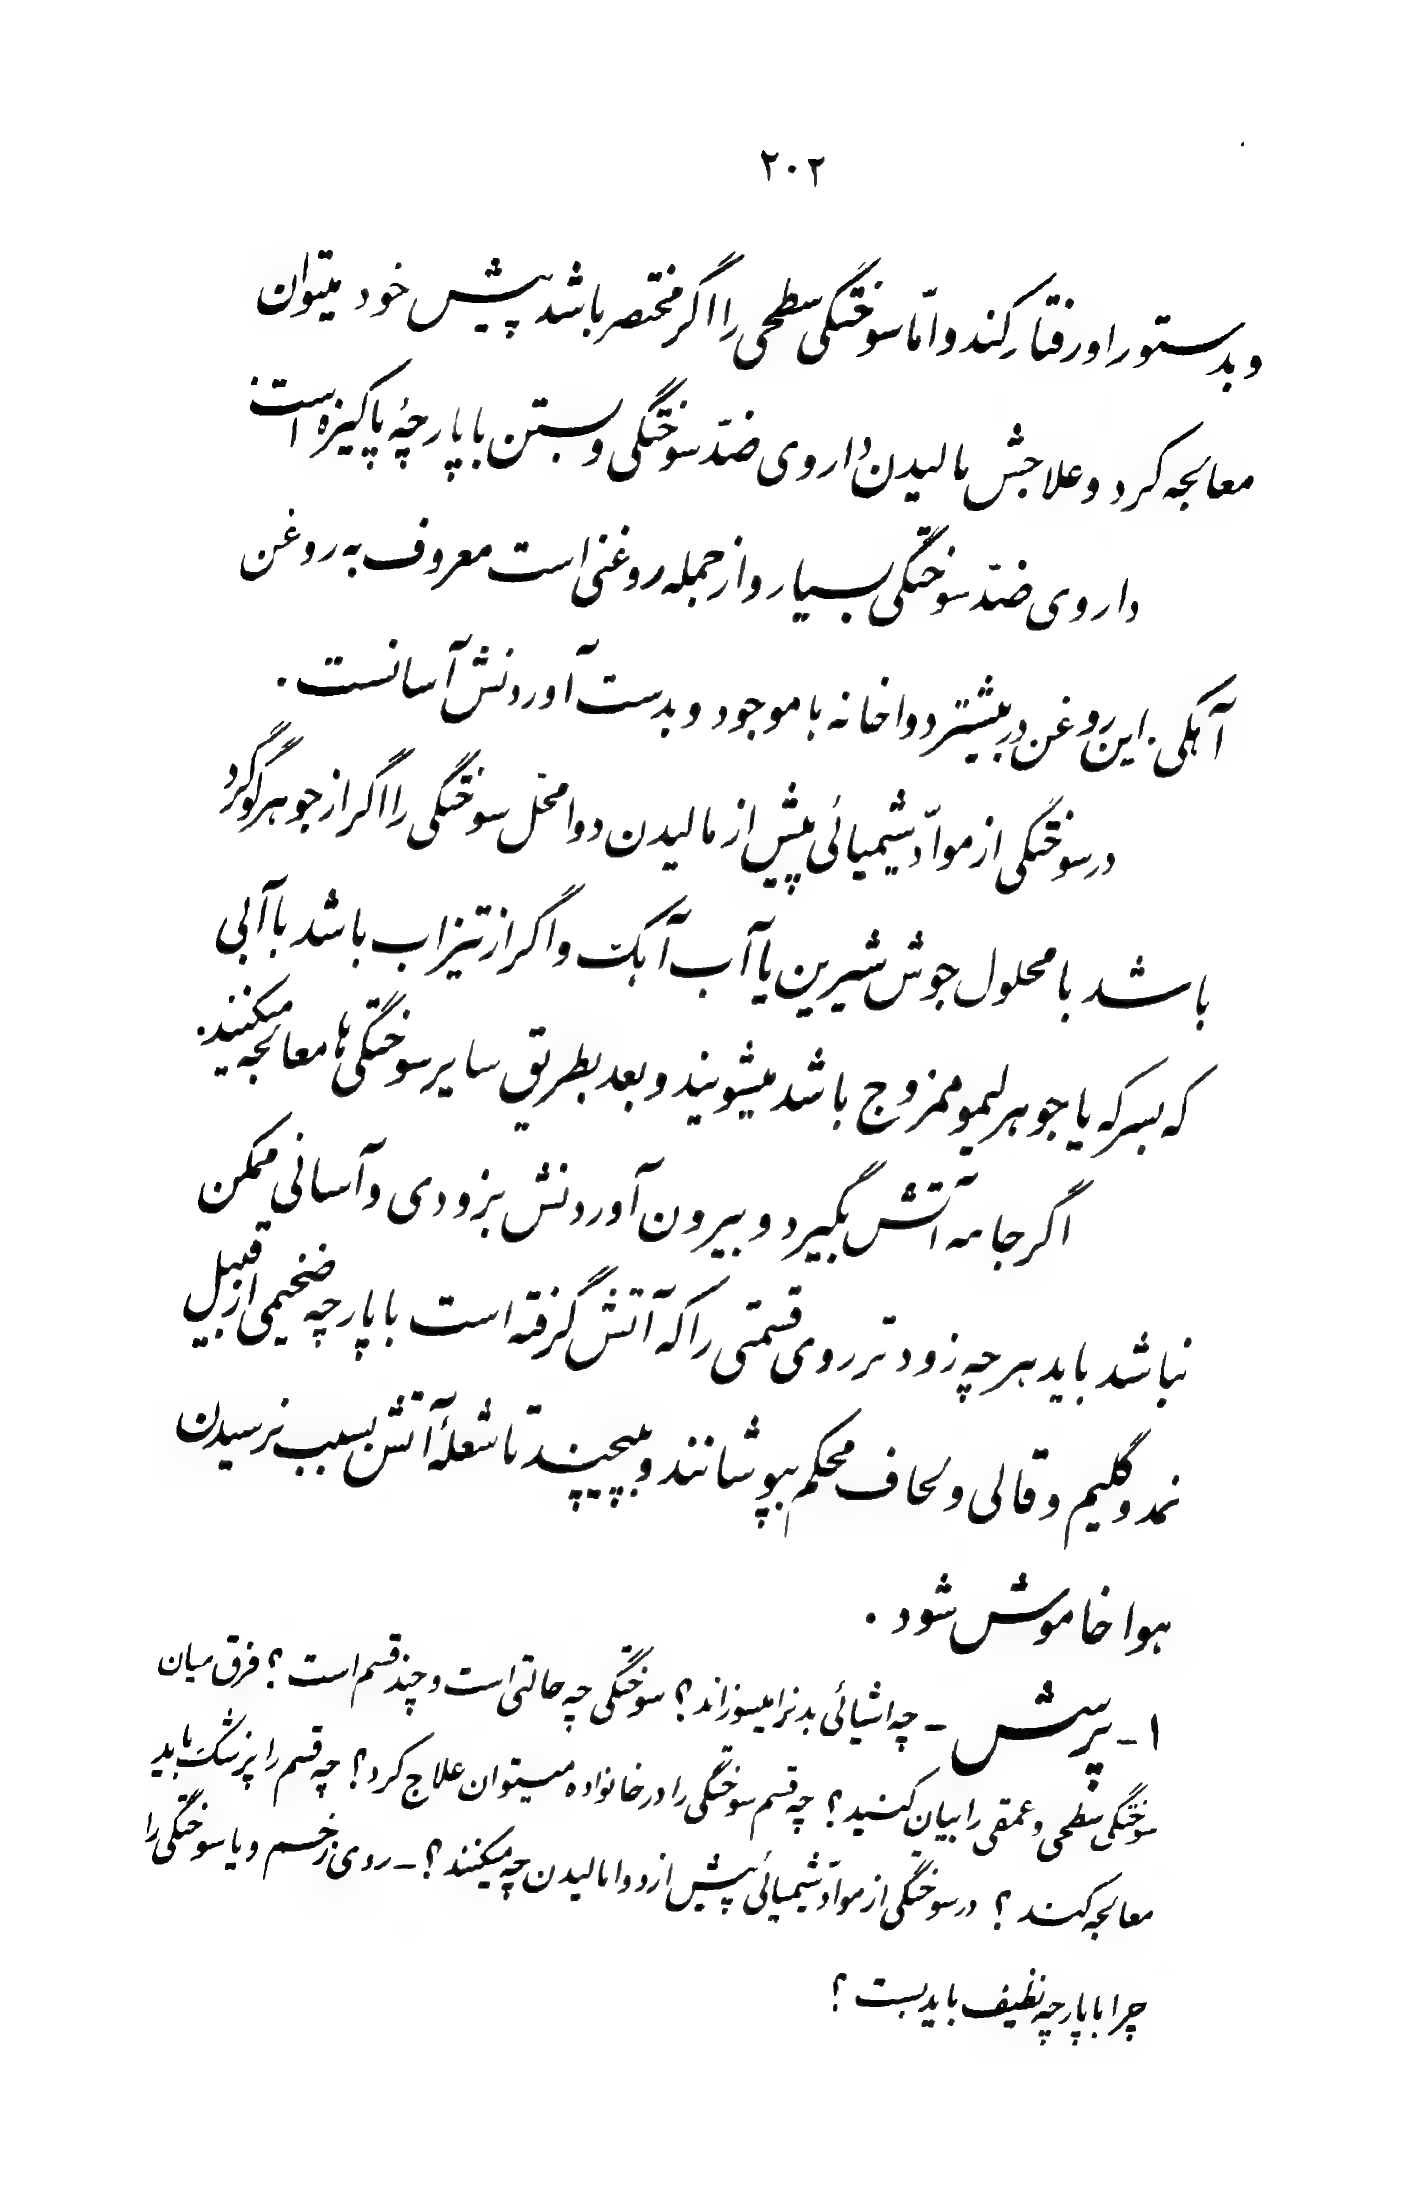 ۲۰۲
و بدستور او رفتار کند و امّا سوختگی سطحی را اگر مختصر باشد پیش خود میتوان
معالجه کرد و علاجش مالیدن داروی ضدّ سوختگی و بستن با پارچهٔ پاکیزه است
داروی ضدّ سوختگی بسیار و از جمله روغنی است معروف به روغن
آهکی . این روغن در بیشتر دواخانه با موجود و بدست آوردنش آسانست .
در سوختگی از موادّ شیمیائی پیش از مالیدن دوا محّل سوختگی را اگر از جوهر گوگرد
باشد با محلول جوش شیرین یا آب آهک و اگر از تیزاب باشد با آبی
که بسرکه یا جوهر لیمو ممزوج باشد میشویند و بعد بطریق سایر سوختگی ها معالجه میکنند .
اگر جامه آتش بگیرد و بیرون آوردنش بزودی و آسانی ممکن
نباشد باید هر چه زودتر روی قسمتی را که آتش گرفته است با پارچه ضخیمی از قبیل
نمد و گلیم و قالی و لحاف محکم بپوشانند و بپیچند تا شعلهٔ آتش بسبب نرسیدن
هوا خاموش شود .
۱ - پرسش - چه اشیائی بدنرا میسوزاند ؟ سوختگی چه حالتی است و چند قسم است ؟ فرق میان
سوختگی سطحی و عمقی را بیان کنید ؟ چه قسم سوختگی را در خانواده میتوان علاج کرد ؟ چه قسم را پزشک باید
معالجه کند ؟ در سوختگی از موادّ شیمیائی پیش از دوا مالیدن چه میکنند ؟ - روی زخم و یا سوختگی را
چرا با پارچه نظیف باید بست ؟